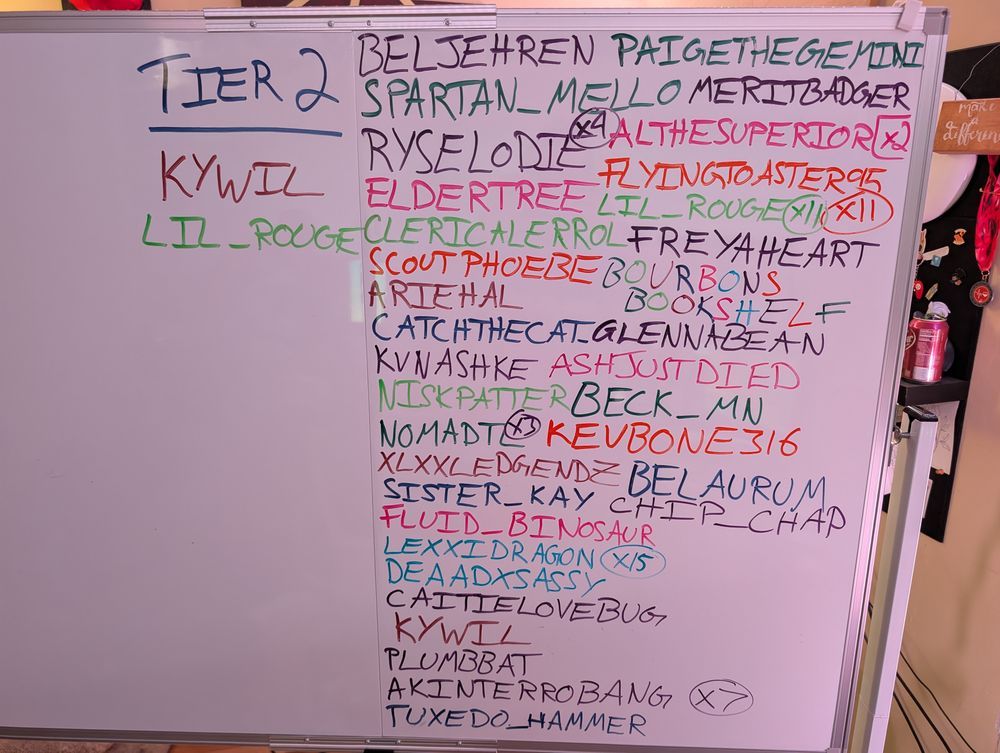 TIER 2
KYWIL
LIL_ROUGE
BELJEHREN
SPARTAN_MELLO
RYSELODIE x4
ELDERTREE
CLERICALERROL
SCOUTPHOEBE
ARIEHAL
CATCHTHECAT_
KVNASHKE
NISKPATTER
NOMADTE x3
XLXXLEDGENDZ
SISTER_KAY
FLUID_BINOSAUR
LEXXIDRAGON x15
DEAADXSASSY
CAITIELOVEBUG
KYWIL
PLUMBBAT
AKINTERROBANG x7
TUXEDO_HAMMER
PAIGETHEGEMINI
MERITBADGER
ALTHESUPERIOR x2
FLYINGTOASTER95
LIL_ROUGE x11 x11
FREYAHEART
BOURBONS
BOOKSHELF
GLENNABEAN
ASHJUSTDIED
BECK_MN
KEVBONE316
BELAURUM
CHIP_CHAP
make
a
difference